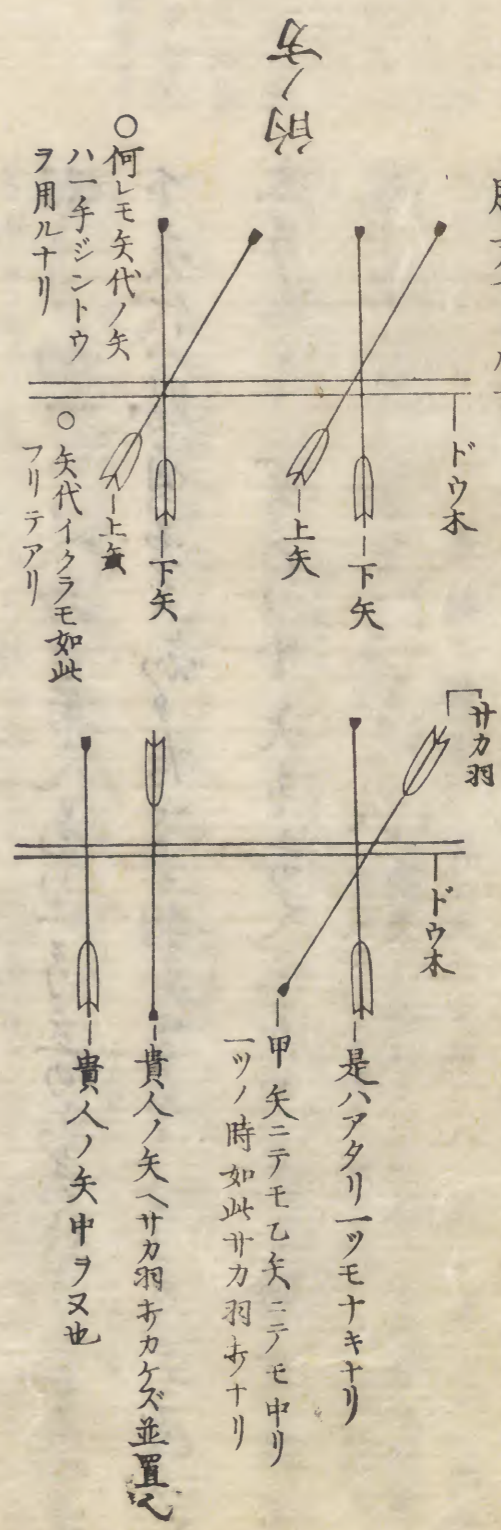 ドウ木
下矢
上矢
下矢
上矢
○何レモ矢代ノ矢
ハ一手ジントウ
ヲ用ルナリ
○矢代イクラモ如此
フリテアリ
サカ羽
ドウ木
是ハアタリ一ツモナキナリ
甲矢ニテモ乙矢ニテモ中リ
一ツノ時如此サカ羽ナリ
貴人ノ矢ヘサカ羽カケズ並置
貴人ノ矢中ラヌ也